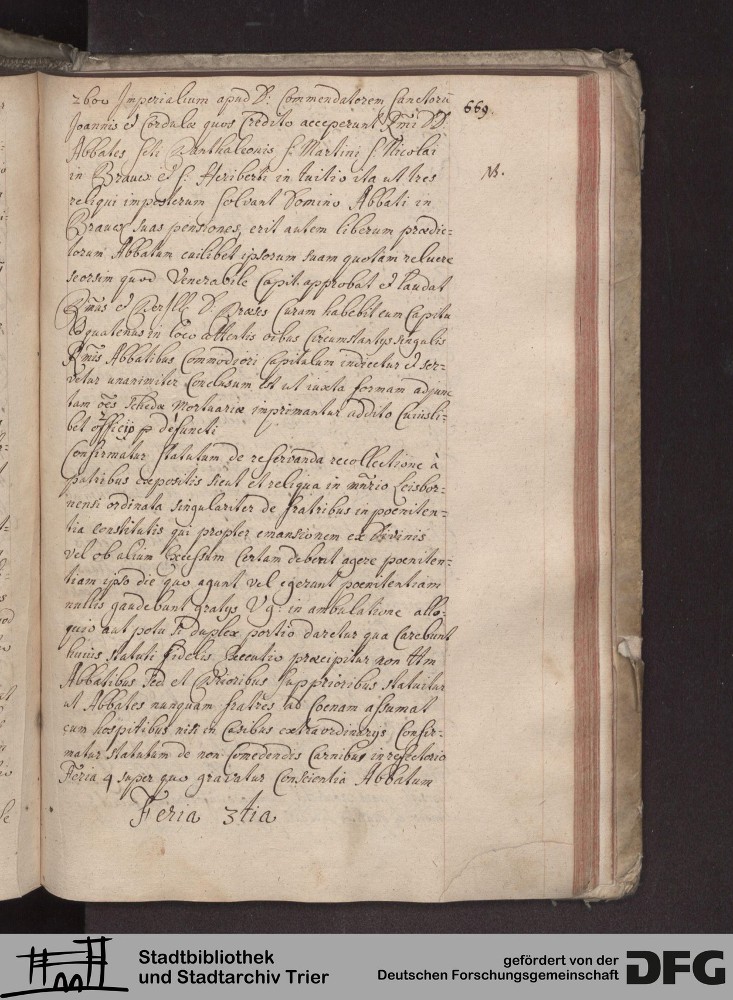 2600 Imperialium apud D: Commendatorem Sanctorū
669.
Joannis et Cordulæ quos Credito acceperunt Rm̃i DD:
Abbates Sc̃ti Panthaleonis S. Martini S. Nicolai
in Brauex et S. Heriberti in tuitio ita ut tres
NB.
reliqui imposterum solvant Domino Abbati in
Brauex suas pensiones, erit autem liberum prædic-
torum Abbatum cuilibet ipsorum suam quotam reluere
seorsim quod Venerabile Capit. approbat et laudat
Rm̃us et D. Præses Curam habebit cum Capitu
quatenus in loco attentis oībus Circumstantijs singulis
Rm̃is Abbatibus Commodiori Capitulum indicetur et ser-
vetur unanimiter Conclusum est ut iuxta formam adjunc
tam oẽs schedæ Mortuariæ imprimantur addito Cuiusli-
bet officijs p defuncti
Confirmatur statutum de reservanda recollectione à
patribus expositis sicut et reliqua in mñrio Leisbor-
nensi ordinata singulariter de fratribus in pœniten-
tia constitutis qui propter emansionem ex divinis
vel ob alium Excessum Certam debent agere pœniten-
tiam ipso die quo agunt vel egerunt pœnitentiam
nullis gaudebunt gratijs Vg: in ambulatione allo-
quio aut potu si duplex portio daretur qua Carebunt
huius statuti fidelis Executio præcipitur non tm̃
Abbatibus sed et Prioribus supprioribus statuitur
ut Abbates nunquam fratres ad Coenam assumat
cum hospitibus nisi in Casibus extraordinarijs, Confir-
matur statutum de non Comedendis Carnibus in refectorio
Feria 4 super quo gravatur Conscientia Abbatum
Feria 3tia
Stadtbibliothek
und Stadtarchiv Trier
gefördert von der
Deutschen Forschungsgemeinschaft
DFG